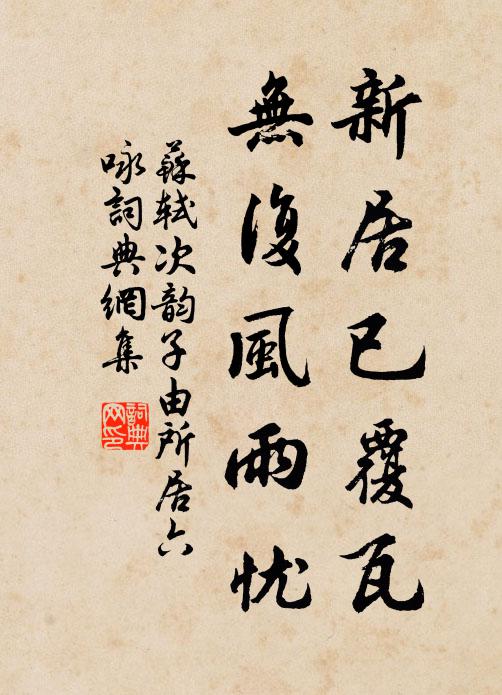 新居已覆瓦
無復風雨忧
蘇軾次韵子由所居六
咏詞典網集
詞典网印